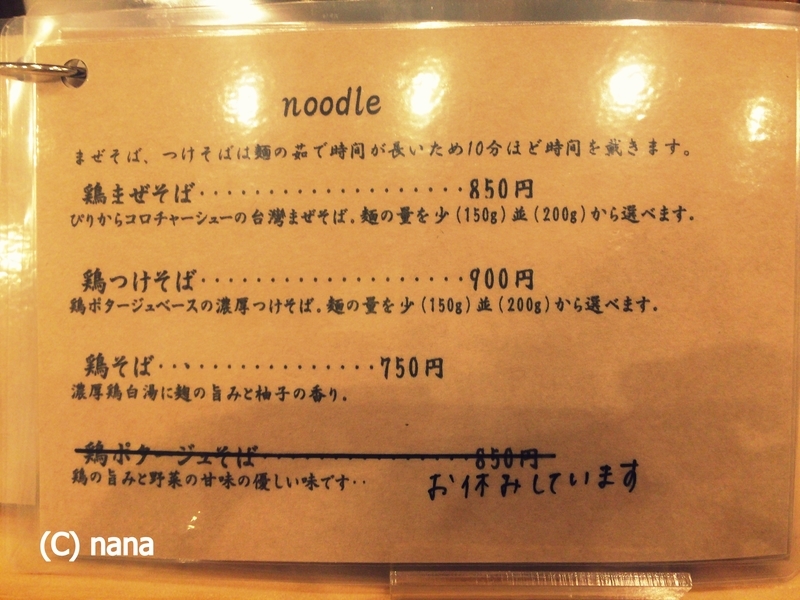 noodle
まぜそば、つけそばは麺の茹で時間が長いため10分ほど時間を戴きます。
鶏まぜそば・・・・・・・・・・・・・・・・・・・・850円
ぴりからコロチャーシューの台灣まぜそば。麺の量を少(150g)並(200g)から選べます。
鶏つけそば・・・・・・・・・・・・・・・・・・・・900円
鶏ポタージュベースの濃厚つけそば。麺の量を少(150g)並(200g)から選べます。
鶏そば・・・・・・・・・・・・・・・・750円
濃厚鶏白湯に麹の旨みと柚子の香り。
鶏ポタージュそば・・・・・・・・・・・・・・・・850円
鶏の旨みと野菜の甘味の優しい味です・・
お休みしています
(C) nana